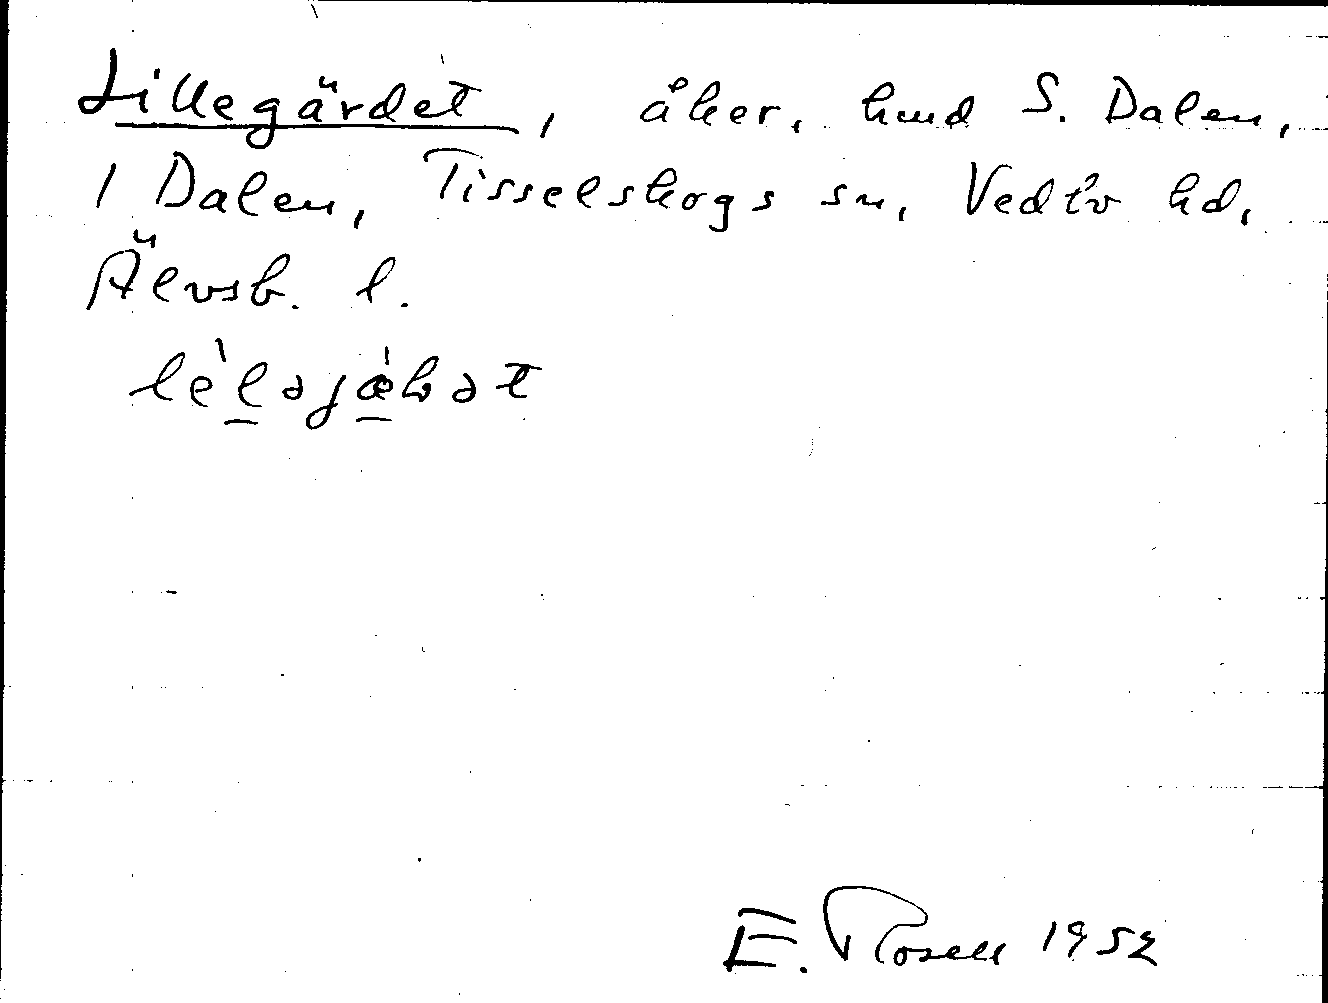 Lillegärdet, åker, hmd S. Dalen,
1 Dalen, Tisselskogs sn, Vedbo hd,
Älvsb. l.
E. Rosell 1952